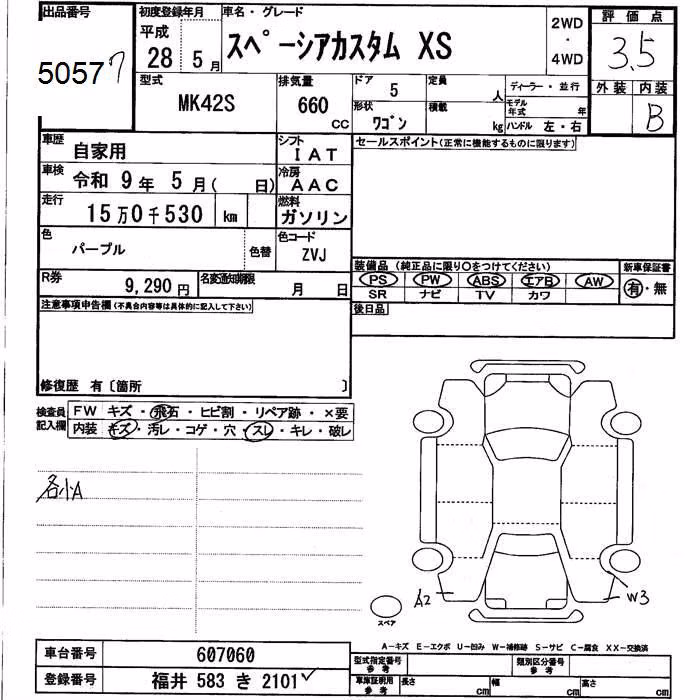 出品番号 初度登録年月 車名・グレード 評価点
50577 平成 28 5月 スペーシアカスタム XS 2WD・4WD 3.5
型式 排気量 ドア 5 定員 人 ディーラー・並行 外装 内装
MK42S 660 CC 形状 ワゴン 積載 kg モデル年式 年 ハンドル 左・右 B
車歴 自家用 シフト IAT セールスポイント(正常に機能するものに限ります)
車検 令和 9年 5月( 日) 冷房 AAC
走行 15万0千530 km 燃料 ガソリン
色 パープル 色替 色コード ZVJ
装備品 (純正品に限り○をつけてください) 新車保証書
R券 9,290円 名変通知期限 月 日 PS PW ABS エアB AW 有・無
SR ナビ TV カワ
注意事項申告欄(不具合内容等は具体的に記入して下さい) 後日品
修復歴 有〔箇所 〕
検査員記入欄 FW キズ・飛石・ヒビ割・リペア跡・×要
内装 キズ・汚レ・コゲ・穴・スレ・キレ・破レ
各小A
A2 W3
スペア
A-キズ E-エクボ U-凹み W-補修跡 S-サビ C-腐食 XX-交換済
車台番号 607060 型式指定番号 参考 類別区分番号 参考
登録番号 福井 583 き 2101 車庫証明用 参考 長さ cm 幅 cm 高さ cm